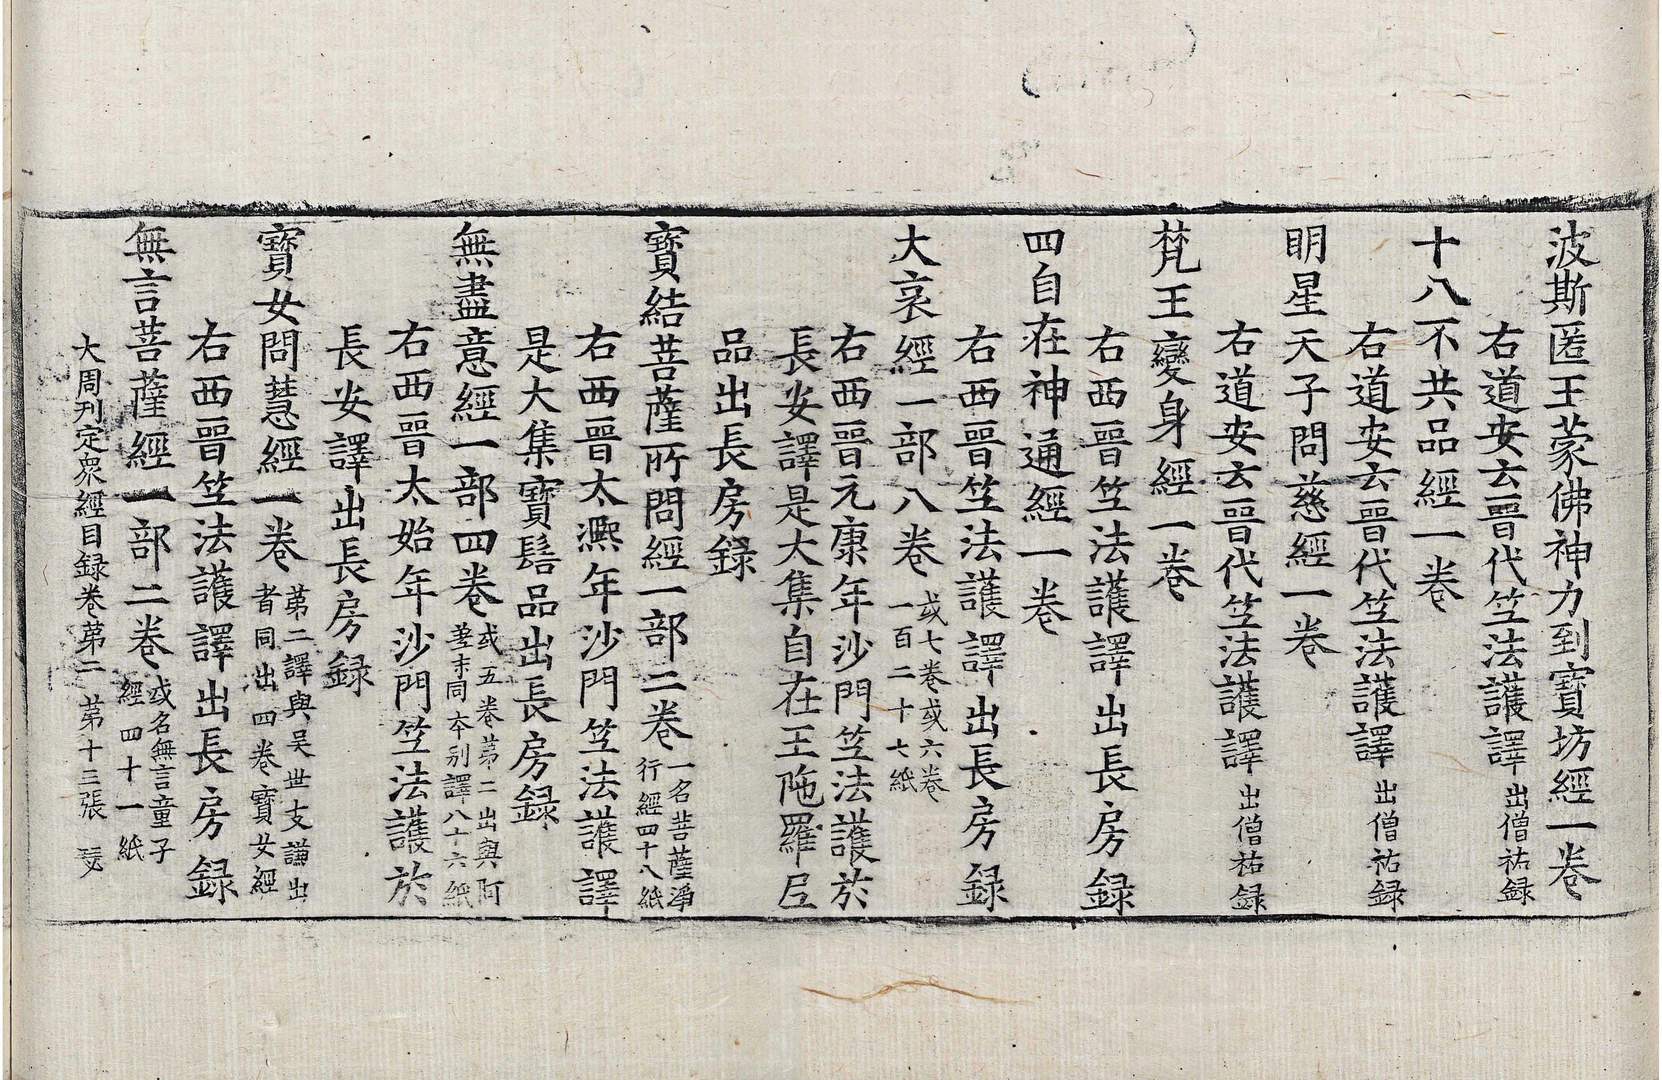 波斯匿王蒙佛神力到寶坊經一卷
右道安云晉代竺法護譯出僧祐録
十八不共品經一卷
右道安云晉代竺法護譯出僧祐録
明星天子問慈經一卷
右道安云晉代竺法護譯出僧祐録
梵王變身經一卷
右西晉竺法護譯出長房録
四自在神通經一卷
右西晉竺法護譯出長房録
大哀經一部八卷或七卷或六卷
一百二十七紙
右西晉元康年沙門竺法護於
長安譯是大集自在王陁羅尼
品出長房録
寶結菩薩所問經一部二卷一名菩薩淨
行經四十八紙
右西晉太熙年沙門竺法護譯
是大集寶髻品出長房録
無盡意經一部四卷或五卷第二出與阿
差末同本别譯八十六紙
右西晉太始年沙門竺法護於
長安譯出長房録
寶女問慧經一卷第二譯與吳世支謙出
者同出四卷寶女經
右西晉竺法護譯出長房録
無言菩薩經一部二卷或名無言童子
經四十一紙
大周刊定衆經目録卷第二 第十三張